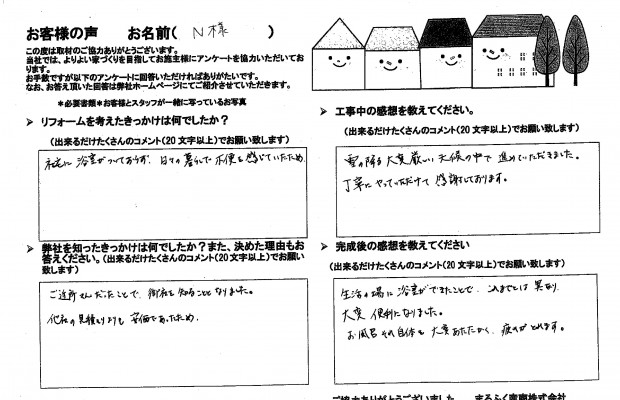 お客様の声　お名前（ N様 ）
この度は取材のご協力ありがとうございます。
当社では、よりよい家づくりを目指してお施主様にアンケートを協力いただいております。
お手数ですが以下のアンケートに回答いただければありがたいです。
なお、お答え頂いた回答は弊社ホームページにてご紹介させていただきます。
＊必要書類＊お客様とスタッフが一緒に写っているお写真
➢ リフォームを考えたきっかけは何でしたか？
（出来るだけたくさんのコメント（20文字以上）でお願い致します）
に浴室がついておらず、日々の暮らしで不便を感じていたため。
➢ 弊社を知ったきっかけは何でしたか？また、決めた理由もお
答えください。（出来るだけたくさんのコメント（20文字以上）でお願い
致します）
ご近所さんだったことで、御社を知ることとなりました。
他社の見積りよりも安価であったため。
➢ 工事中の感想を教えてください。
（出来るだけたくさんのコメント（20文字以上）でお願い致します）
雪の降る大変厳しい天候の中で進めていただきました。
丁寧にやっていただけて感謝しております。
➢ 完成後の感想を教えてください
（出来るだけたくさんのコメント（20文字以上）でお願い致します）
生活の場に浴室ができたことで、これまでとは異なり、
大変便利になりました。
お風呂その自体も大変あたたかく、疲れがとれます。
ご協力ありがとうございました　まるふく